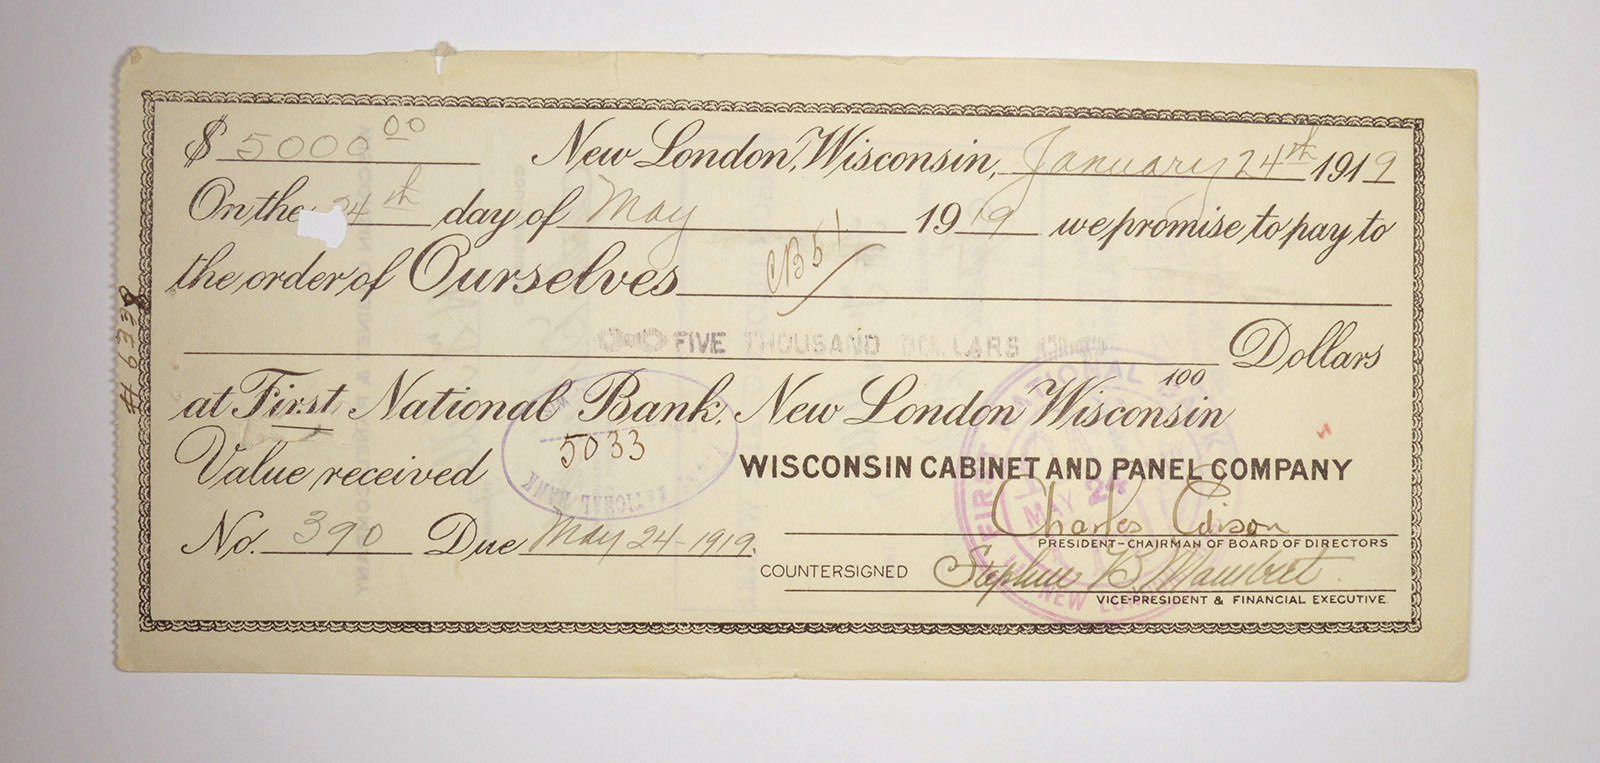 $ 5000 00 New London, Wisconsin, January 24th 1919
On the 24th day of May 1919 we promise to pay to
the order of Ourselves
CB51
FIVE THOUSAND DOLLARS Dollars
100
at First National Bank, New London Wisconsin
5033
NATIONAL BANK
Value received WISCONSIN CABINET AND PANEL COMPANY
Charles Edison
No. 390 Due May 24-1919.
PRESIDENT-CHAIRMAN OF BOARD OF DIRECTORS
COUNTERSIGNED Stephen B. Mambert
VICE-PRESIDENT & FINANCIAL EXECUTIVE.
FIRST NATIONAL
MAY 24
NEW LON
#6338